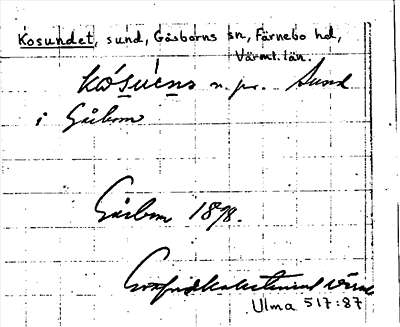 Kosundet, sund, Gåsborns sn, Färnebo hd,
Värml. län.
n. pr. Sund
i Gåsborn
Gåsborn 1898.
Ulma 517:87